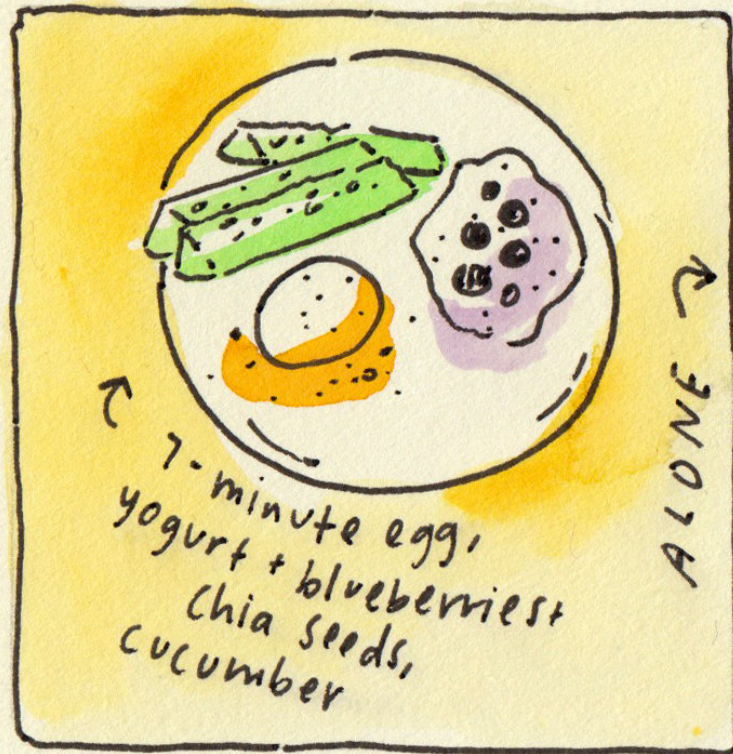 7-minute egg,
yogurt + blueberries+
chia seeds,
cucumber
ALONE